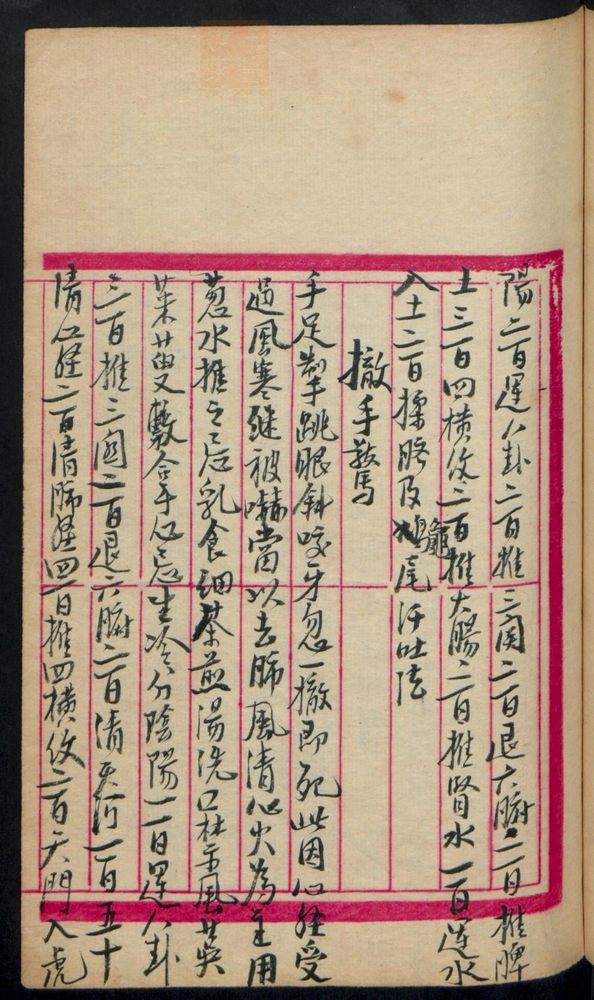 陽二百運八卦二百推三関二百退六腑二百推脾
土三百四橫紋二百推大腸二百推腎水一百運水
入土二百揉臍及龜尾汗吐法
撒手驚
手足掣跳眼斜咬牙忽一撒即死此因心經受
過風寒継被嚇當以去肺風清心火為主用
葱水推之忌乳食細茶煎湯洗口
敷合手心忌生冷分陰陽一百運八卦
三百推三関二百退六腑二百清天河一百五十
清心經二百清肺經四百推四橫紋二百天門入虎